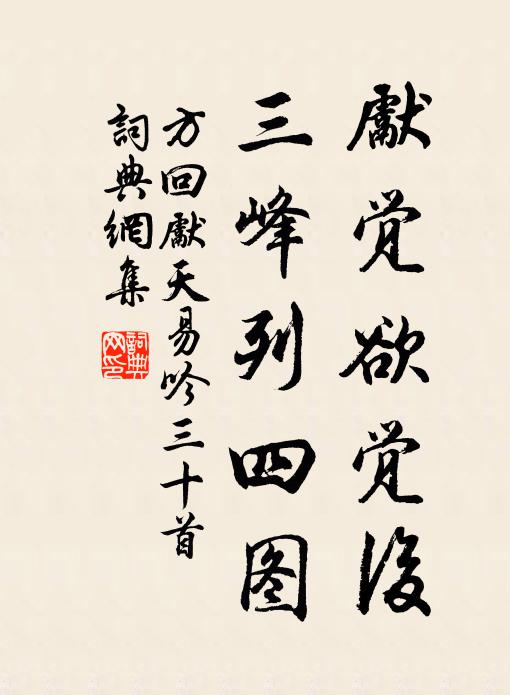 獻觉欲觉後
三峰列四图
方回獻天易吟三十首
詞典網集
詞典网印